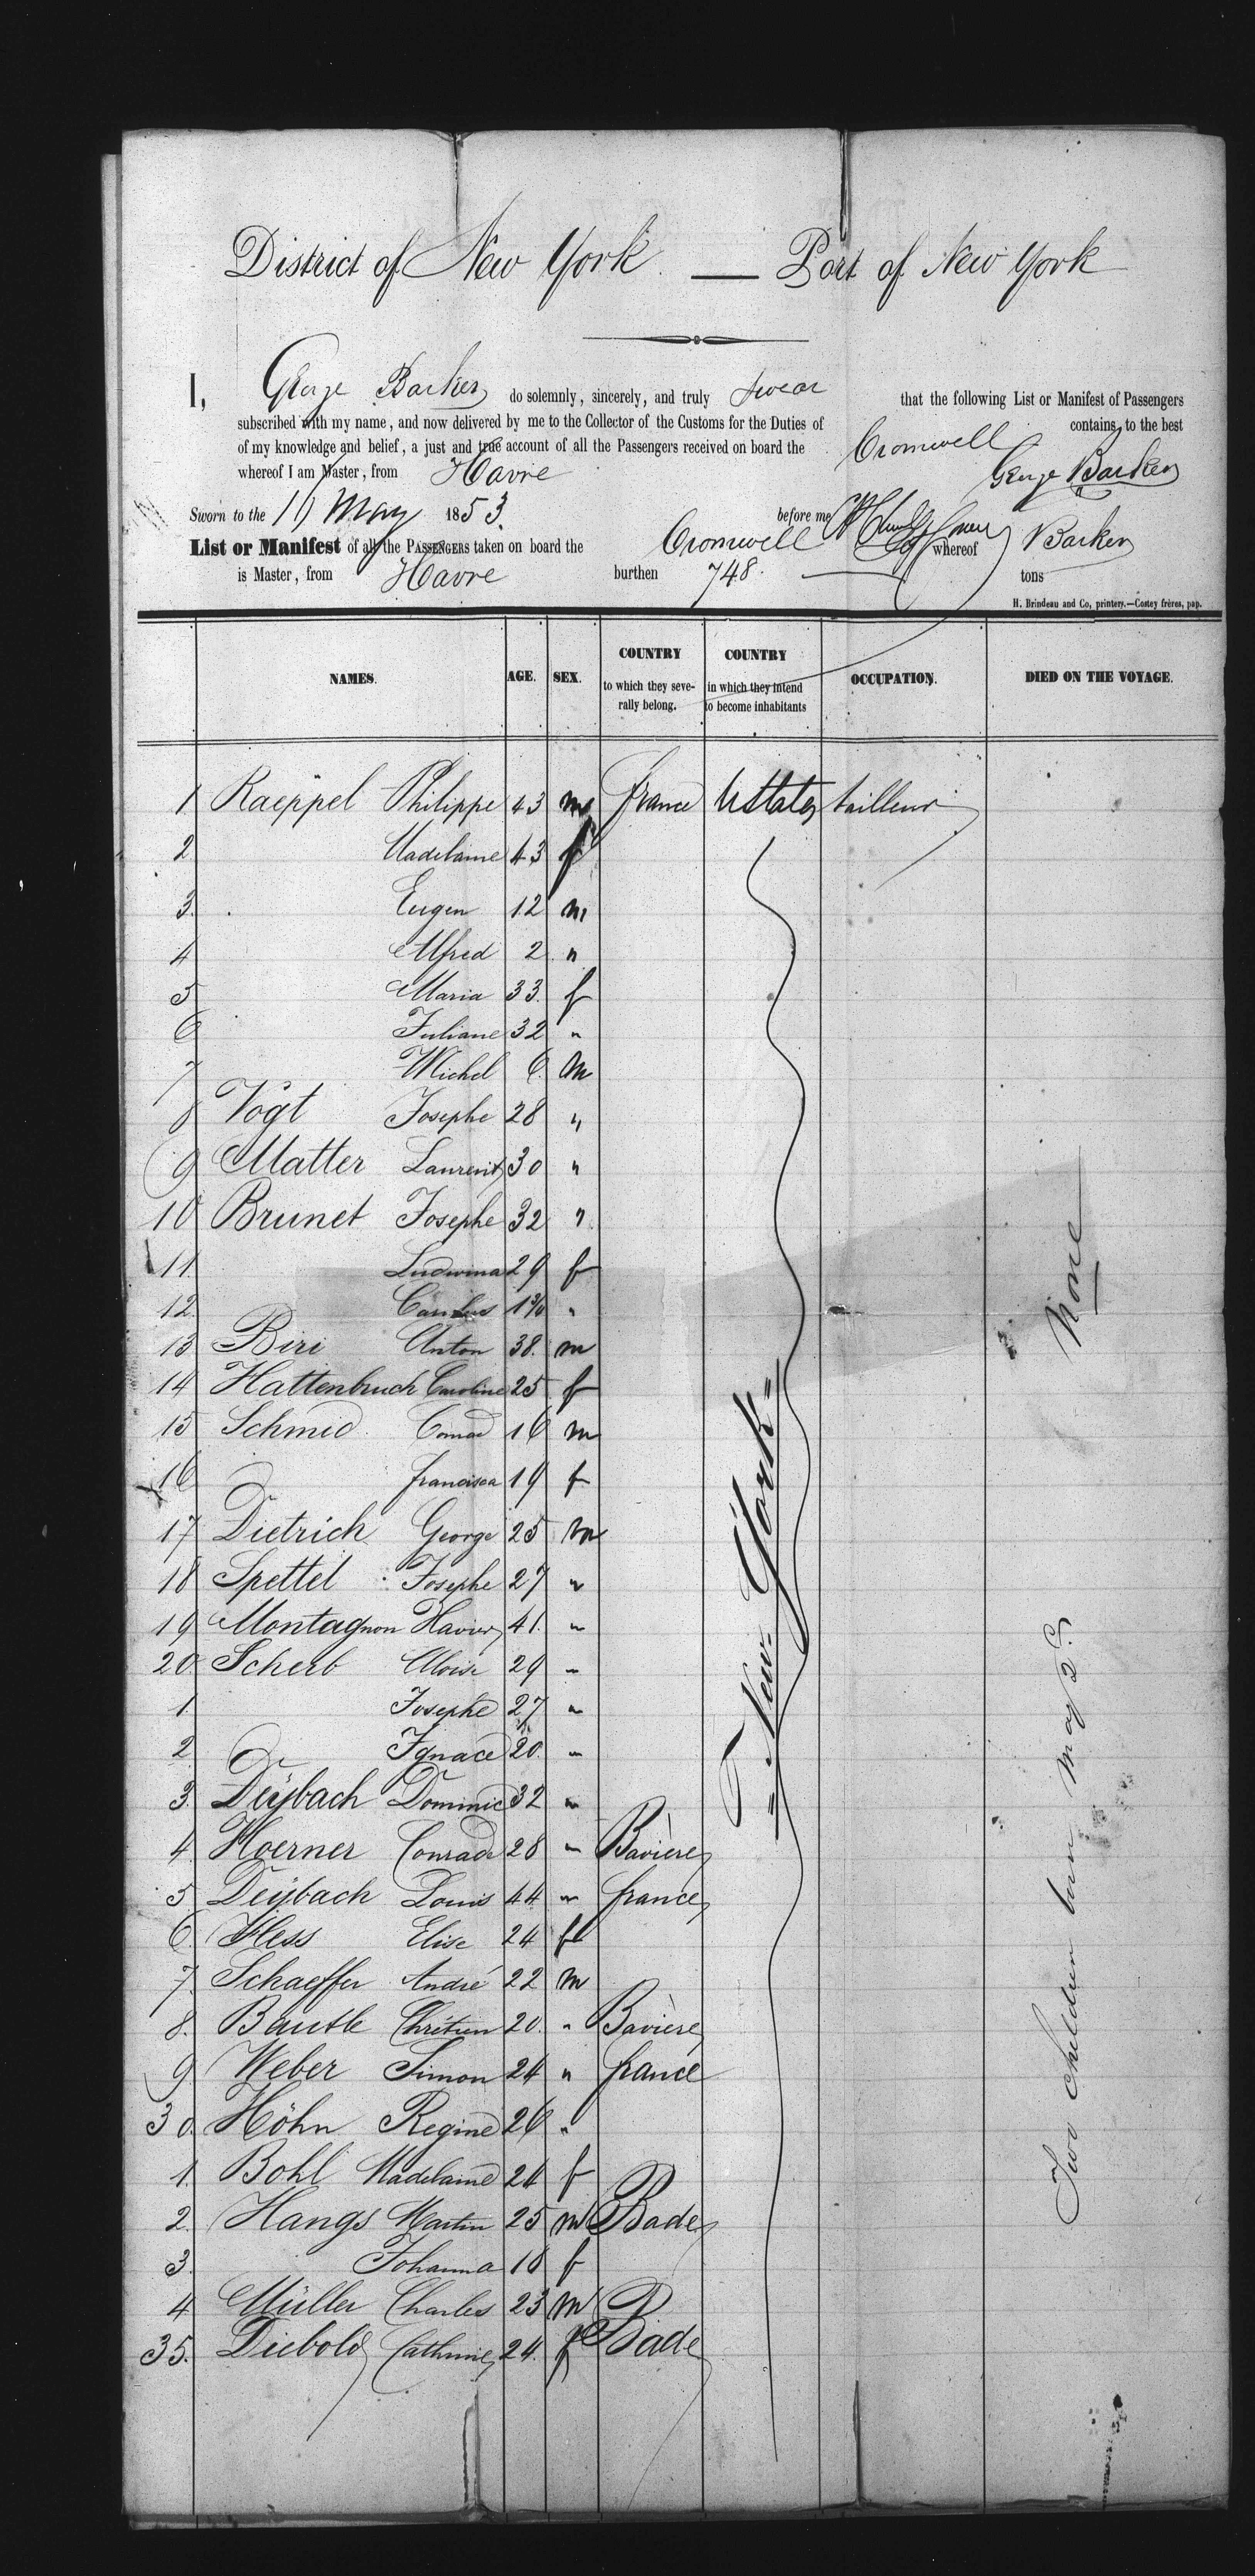 District of New York — Port of New York
I, George Barker do solemnly, sincerely, and truly swear that the following List or Manifest of Passengers
subscribed with my name, and now delivered by me to the Collector of the Customs for the Duties of contains, to the best
of my knowledge and belief, a just and true account of all the Passengers received on board the Cromwell
whereof I am Master, from Havre George Barker
Sworn to the 19 May 1853. before me
List or Manifest of all the PASSENGERS taken on board the Cromwell whereof Barker
is Master, from Havre burthen 748. tons
H. Brindeau and Co, printery.—Costey frères, pap.
NAMES. AGE. SEX. COUNTRY to which they severally belong. COUNTRY in which they intend to become inhabitants OCCUPATION. DIED ON THE VOYAGE.
1 Raeppel Philippe 43 m france UStates tailleur
2 Madelaine 43 f
3. Eugen 12 m
4 Alfred 2 "
5 Maria 33. f
6 Juliane 32 "
7 Michel 6. m
8 Vogt Josephe 28 "
9 Matter Laurent 30 "
10 Brunet Josephe 32 "
11. Ludwina 29 f
12. 1 3/4 "
13 Biri Anton 38. m
14 Hattenbruch Caroline 25 f
15 Schmid Conrad 16 m
16 francisca 19 f
17 Dietrich George 25 m
18 Spettel Josephe 27 "
19 Montagnon Xavier 41. "
20 Scherb Aloise 29 "
1 Josephe 27 "
2 Ignace 20. "
3. Deÿbach Dominic 32 "
4. Hoerner Conrade 28 " Bavière
5 Deÿbach Louis 44 " france
6. Hess Elise 24 f
7. Schaeffer André 22 m
8. Bäutle Chrétien 20. " Bavière
9. Weber Simon 24 " france
30. Höhn Regine 26 "
1. Bohl Madelaine 24 f
2. Hangs Martin 25 m Bade
3. Johanna 18 f
4 Müller Charles 23 m
35. Diebold Cathrine 24. f Bade
" New-York "
None
Two children born May 2d